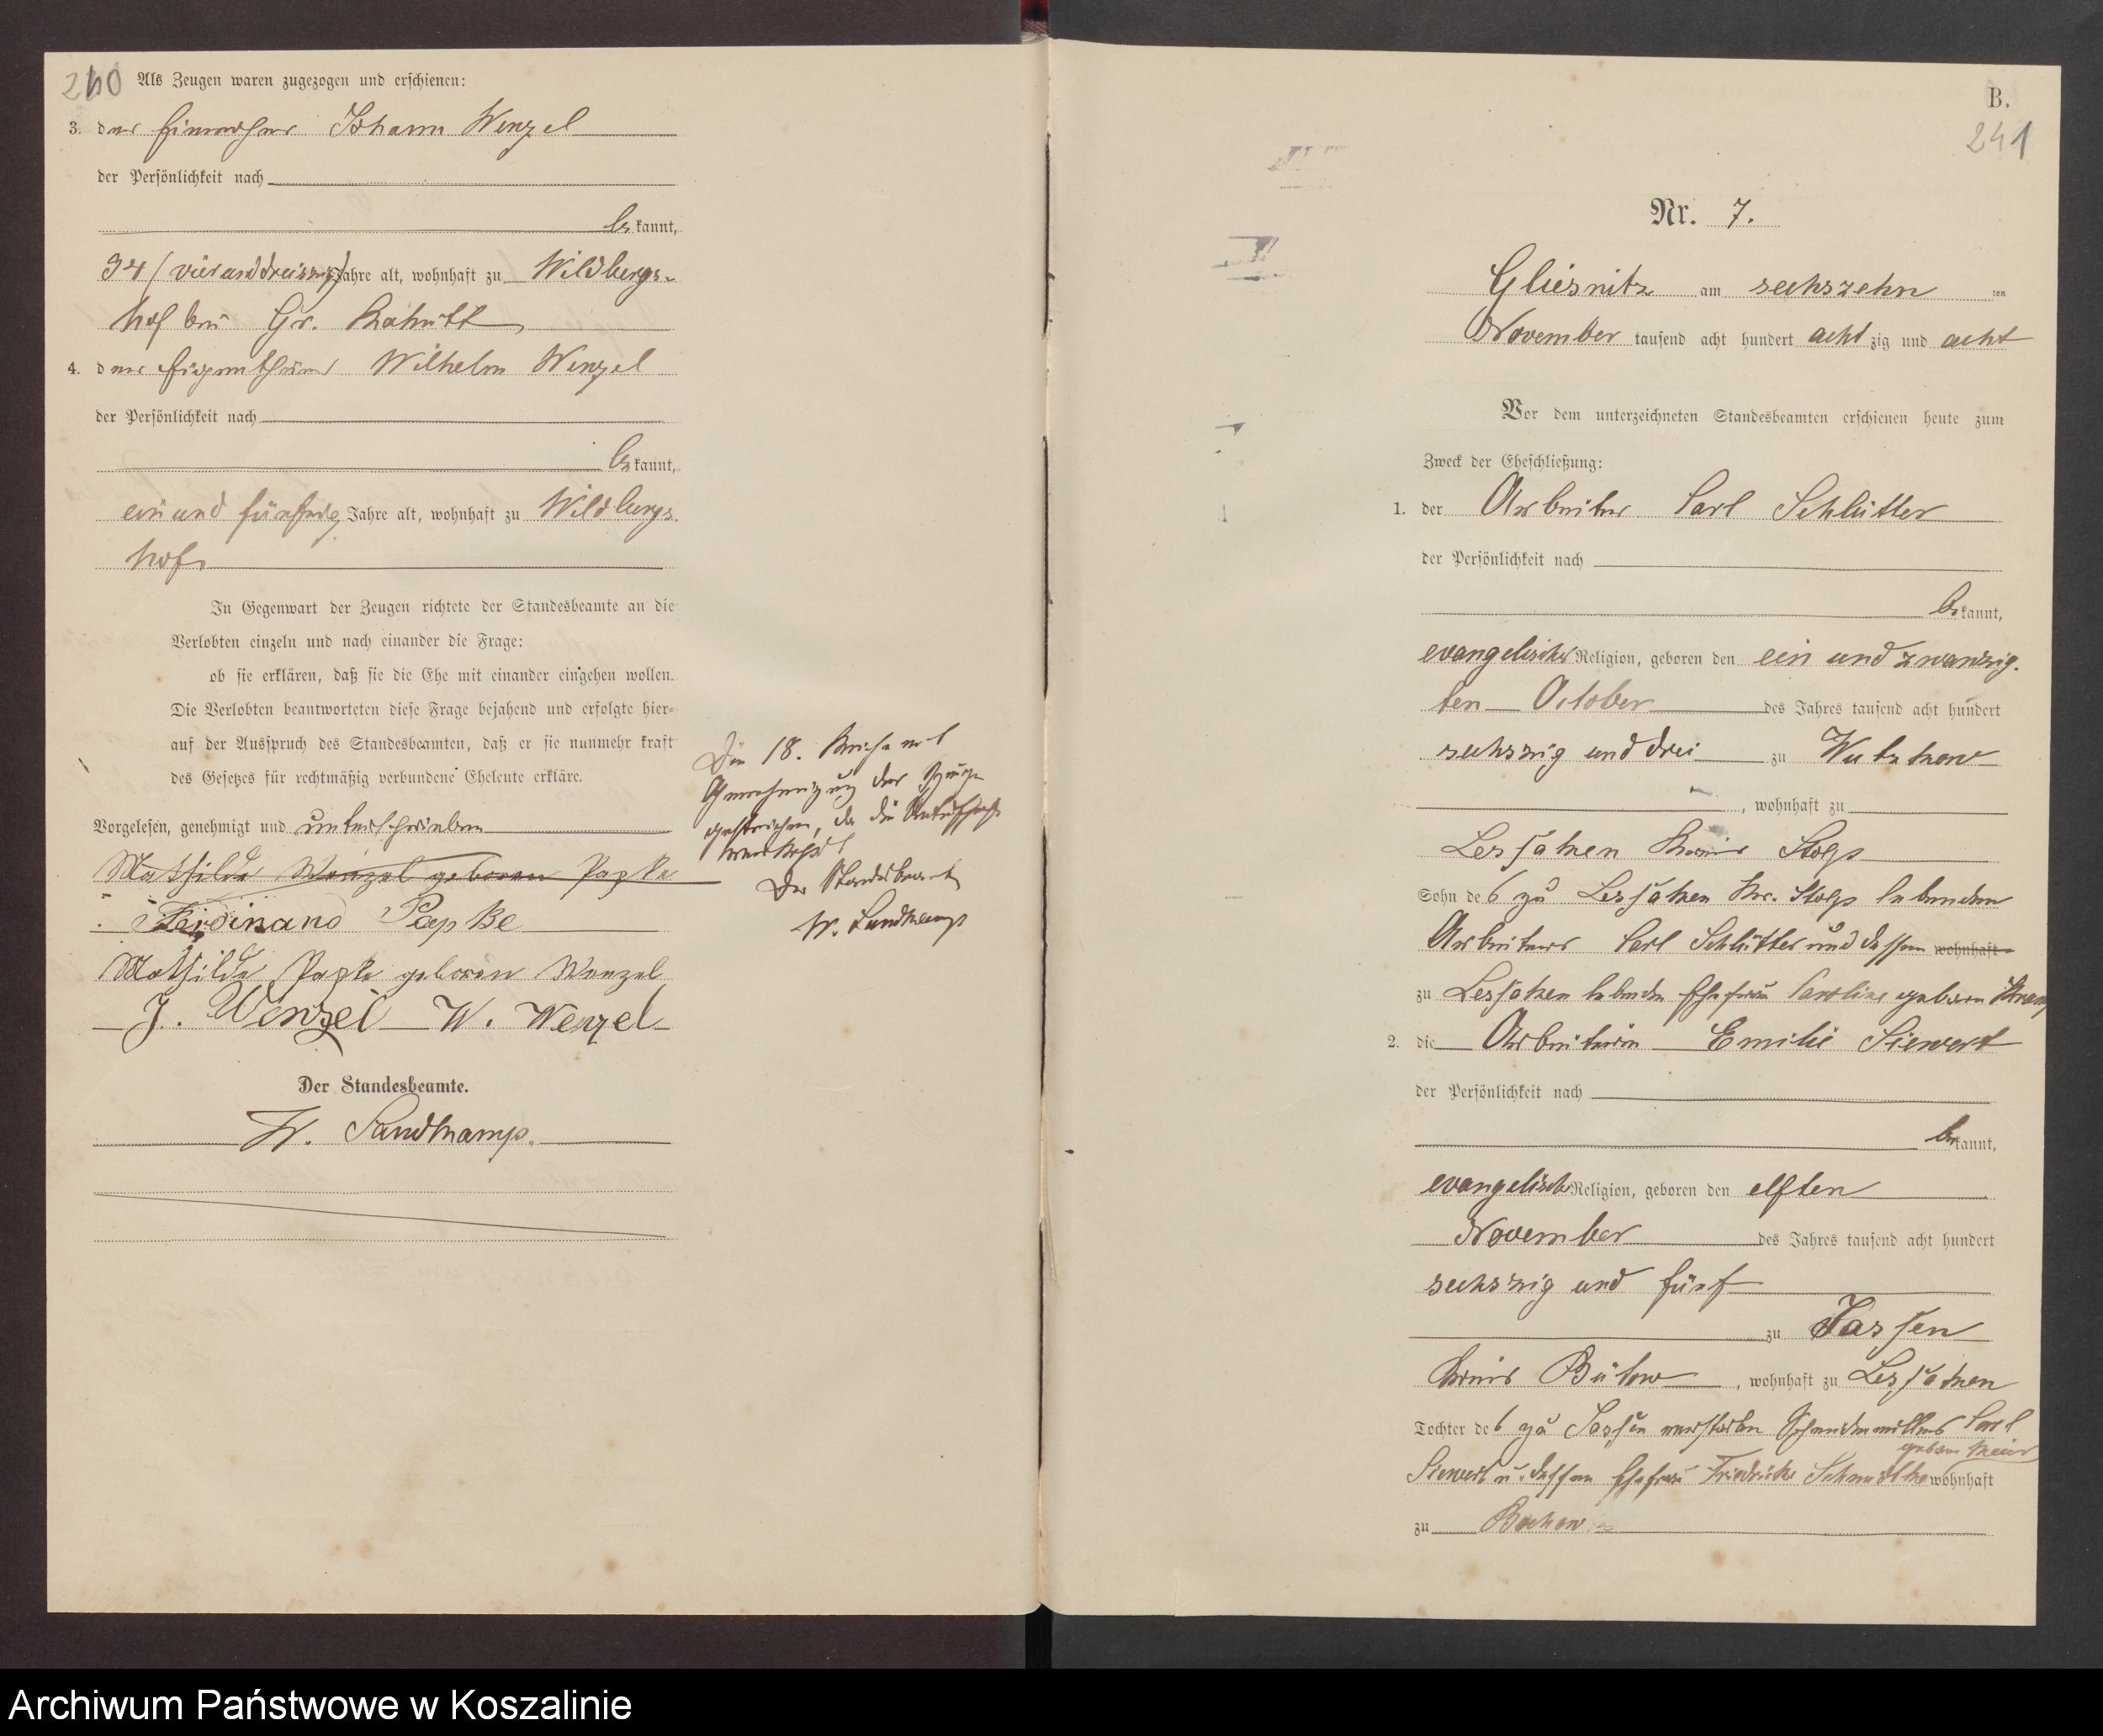 240
Als Zeugen waren zugezogen und erschienen:
3. der Einwohner Johann Wenzel
der Persönlichkeit nach
be kannt,
34 (vierunddreissig) Jahre alt, wohnhaft zu Wildbergs-
hof bei Gr.
4. der Eigenthümer Wilhelm Wenzel
der Persönlichkeit nach
be kannt,
ein und fünfzig Jahre alt, wohnhaft zu Wildbergs-
hof
In Gegenwart der Zeugen richtete der Standesbeamte an die
Verlobten einzeln und nach einander die Frage:
ob sie erklären, daß sie die Ehe mit einander eingehen wollen.
Die Verlobten beantworteten diese Frage bejahend und erfolgte hier-
auf der Ausspruch des Standesbeamten, daß er sie nunmehr kraft
des Gesetzes für rechtmäßig verbundene Eheleute erkläre.
Vorgelesen, genehmigt und unterschrieben
Mathilde Wenzel geboren Papke
Ferdinand Papke
Mathilde Papke geboren Wenzel
J. Wenzel W. Wenzel
Der Standesbeamte.
W. Sandkamp.
Die 18. mit
Genehmigung der
gestrichen, da die
Der Standesbeamte
W. Sandkamp
B.
241
Nr. 7.
Gliesnitz am sechszehn ten
November tausend acht hundert acht zig und acht
Vor dem unterzeichneten Standesbeamten erschienen heute zum
Zweck der Eheschließung:
1. der Arbeiter Carl Schlütter
der Persönlichkeit nach
be kannt,
evangelischer Religion, geboren den ein und zwanzig-
ten October des Jahres tausend acht hundert
sechszig und drei zu Wutzkow
, wohnhaft zu
Lessaken Kreis Stolp
Sohn des zu Lessaken Kr. Stolp lebenden
Arbeiters Carl Schlütter und dessen wohnhaft
zu Lessaken lebenden Ehefrau Caroline geboren
2. die Arbeiterin Emilie Siewert
der Persönlichkeit nach
be kannt,
evangelischer Religion, geboren den elften
November des Jahres tausend acht hundert
sechszig und fünf
zu Jassen
Kreis Bütow , wohnhaft zu Lessaken
Tochter des zu Jassen verstorben Schneidemüllers Carl
Siewert u. dessen Ehefrau Friedricke Schmidtke wohnhaft
zu Bochow
Archiwum Państwowe w Koszalinie